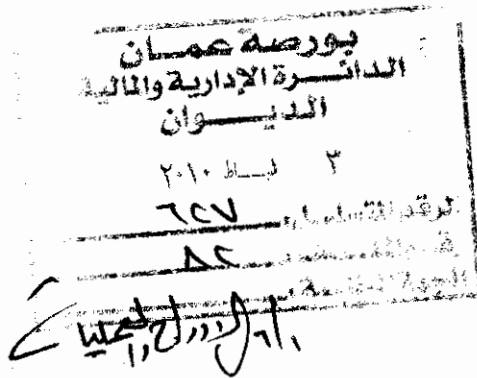 بورصة عمان
الدائرة الإدارية والمالية
الديوان
٣ شباط ٢٠١٠
الرقم المتسلسل ٦٢٧
رقم الملف ٨٢
الجهة المختصة